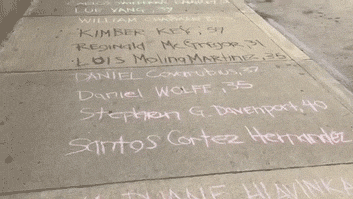 LUE VANG, 37
WILLIAM
KIMBER KEY, 59
Reginald McGregor, 31
LUIS Molina Martinez, 35
DANIEL Covarrubias, 37
Daniel WOLFE, 35
Stephen G. Davenport, 40
Santos Cortez Hernandez
DUANE